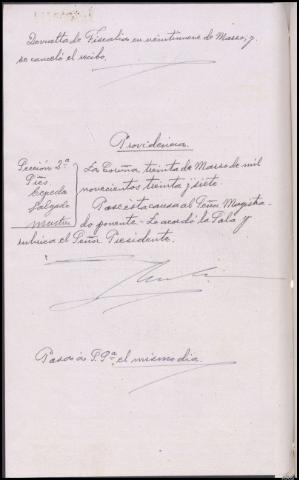 Devuelta de Fiscalía en veintinueve de Marzo, y
se canceló el recibo.
Providencia
Sección 2ª
Sres
Cepeda
Salgado
La Coruña, treinta de Marzo de mil
novecientos treinta y siete.
Pase esta causa al Señor Magistra-
do ponente. Lo acordó la Sala y
rubrica el Señor Presidente.
Pasa á S. Sª el mismo dia.